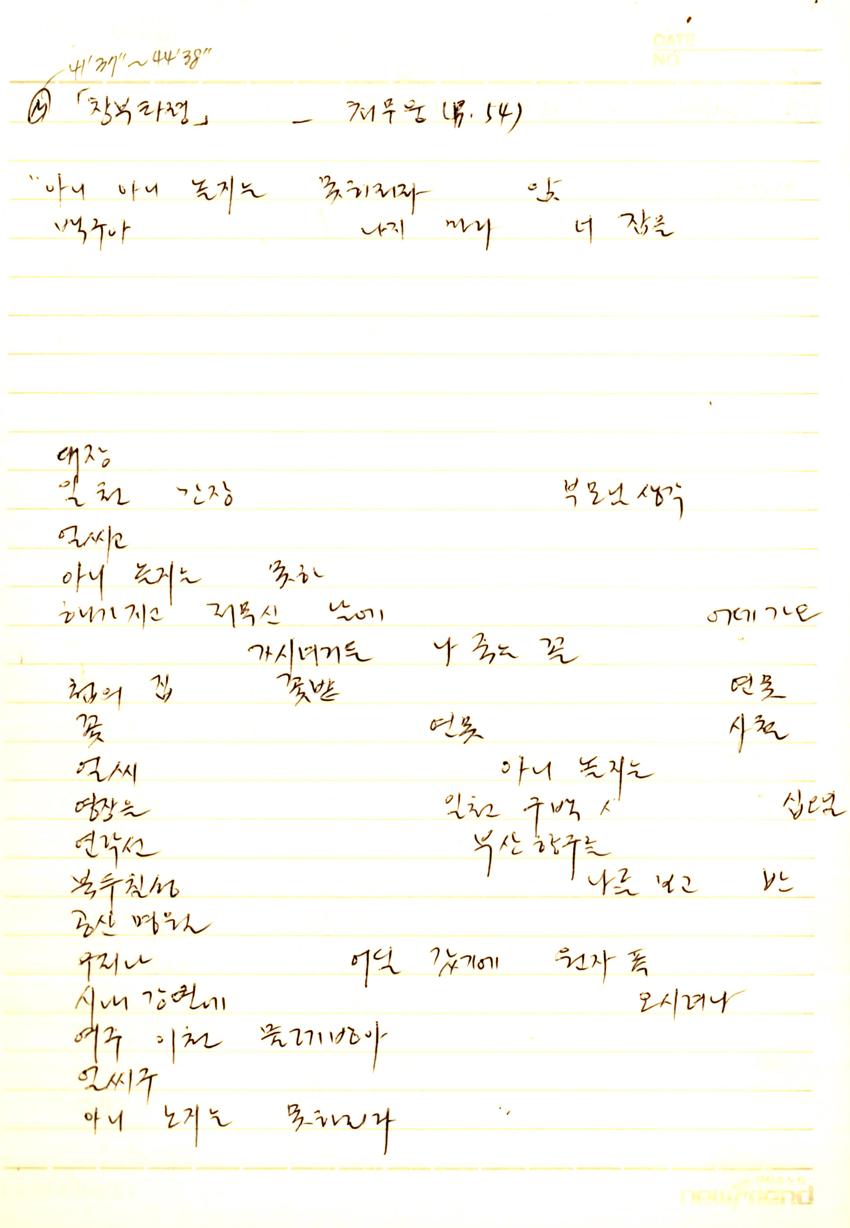 41'37"~44'38"
「창부타령」 - 최무웅 (男. 54)
DATE
NO.
"아니 아니 놀지는 못하리라
백구야 나지 마라 너 잡을
대장
일천 간장 부모님 생각
얼씨고
아니 놀지는 못하
해가 지고 저무신 날에 어데 가오
가시녀거든 나 죽는 꼴
첩의 집 꽃밭 연못
꽃 연못 사철
얼씨 아니 놀지는
영장은 일천 구백 십오일
연락선 부산 항구를
북두칠성 나를 보고 반
공산 명월
우리나 어딜 갔게에 원자 폭
시내 강변에 오시려나
여주 이천 물레방아
얼씨구
아니 노지는 못하리라